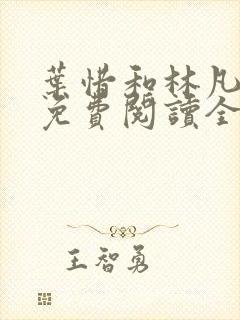 葉惜和林凡
免費閱讀全
王智勇